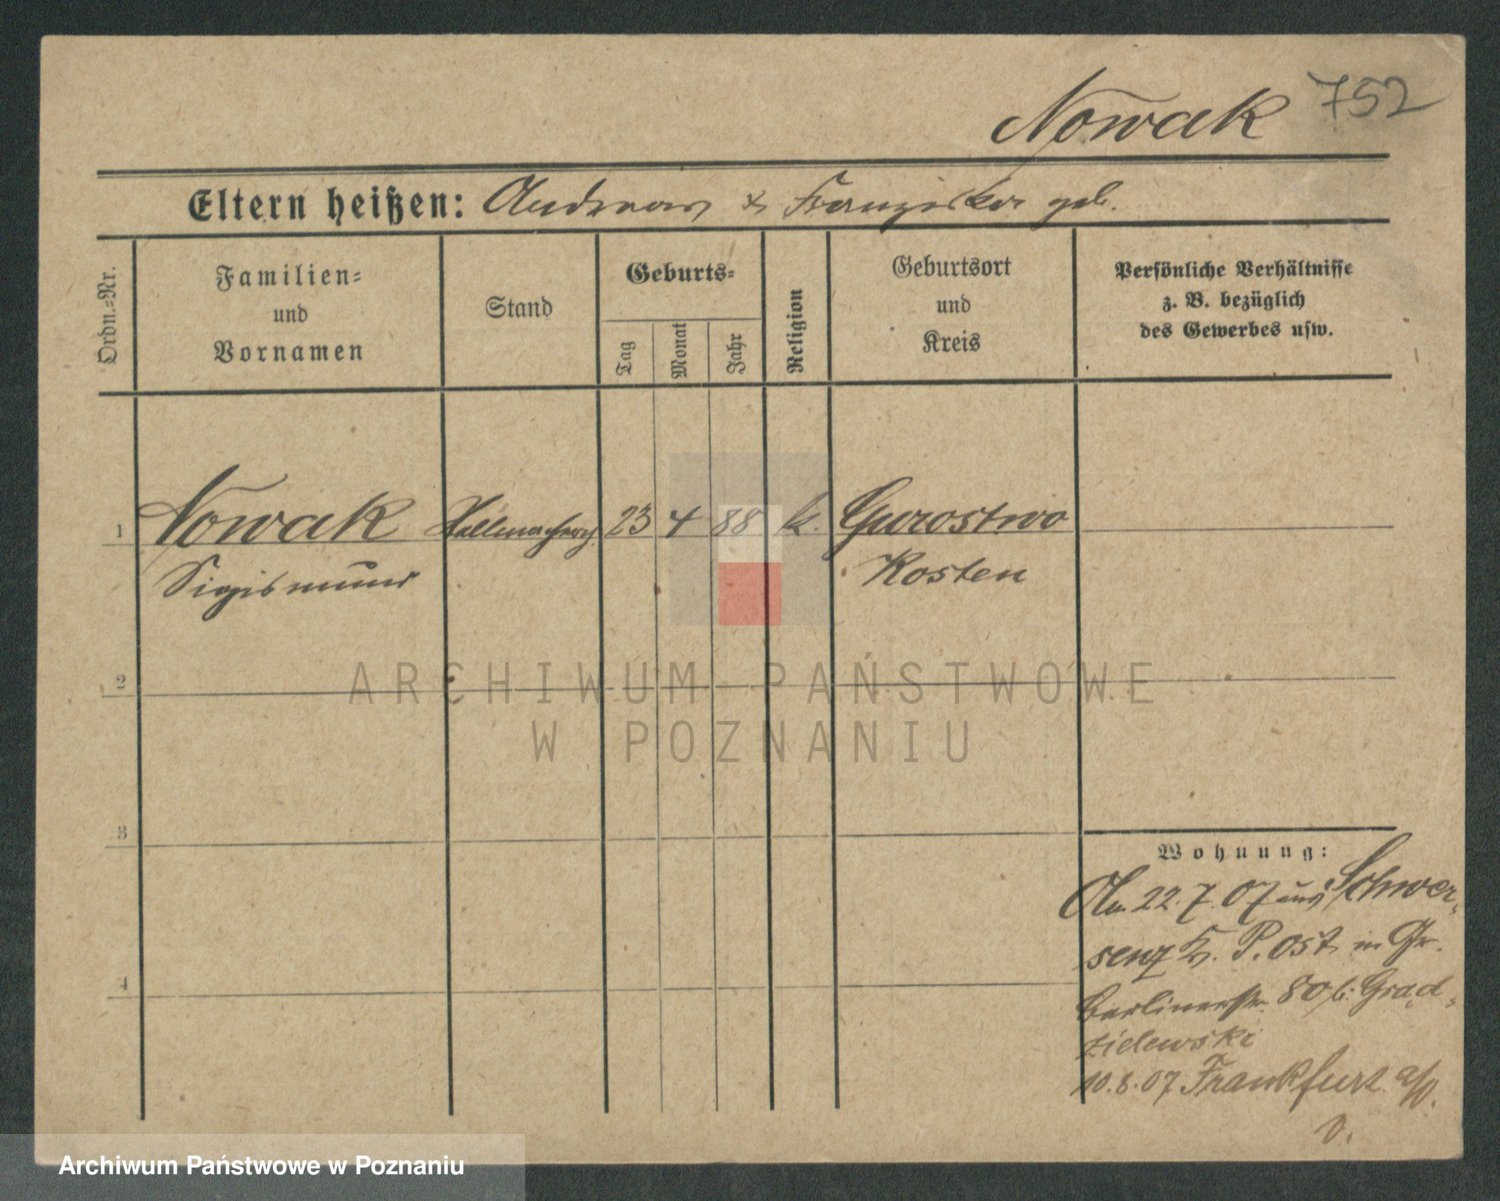 Nowak 752
Eltern heißen: Andreas & Franziska geb.
Ordn.=Nr.
Familien=
und
Vornamen
Stand
Geburts=
Tag
Monat
Jahr
Religion
Geburtsort
und
Kreis
Persönliche Verhältnisse
z. B. bezüglich
des Gewerbes usw.
1 Nowak Stellmacherg 23 4 88 k. Gurostwo
Sigismund Kosten
2
ARCHIWUM PAŃSTWOWE
W POZNANIU
3
Wohnung:
Am 22.7.07 aus Schwer-
senz Kr. P. Ost in Gr.
Berlinerstr. 80 b. Grad-
zielewski
10.8.07 Frankfurt a/O.
V.
4
Archiwum Państwowe w Poznaniu